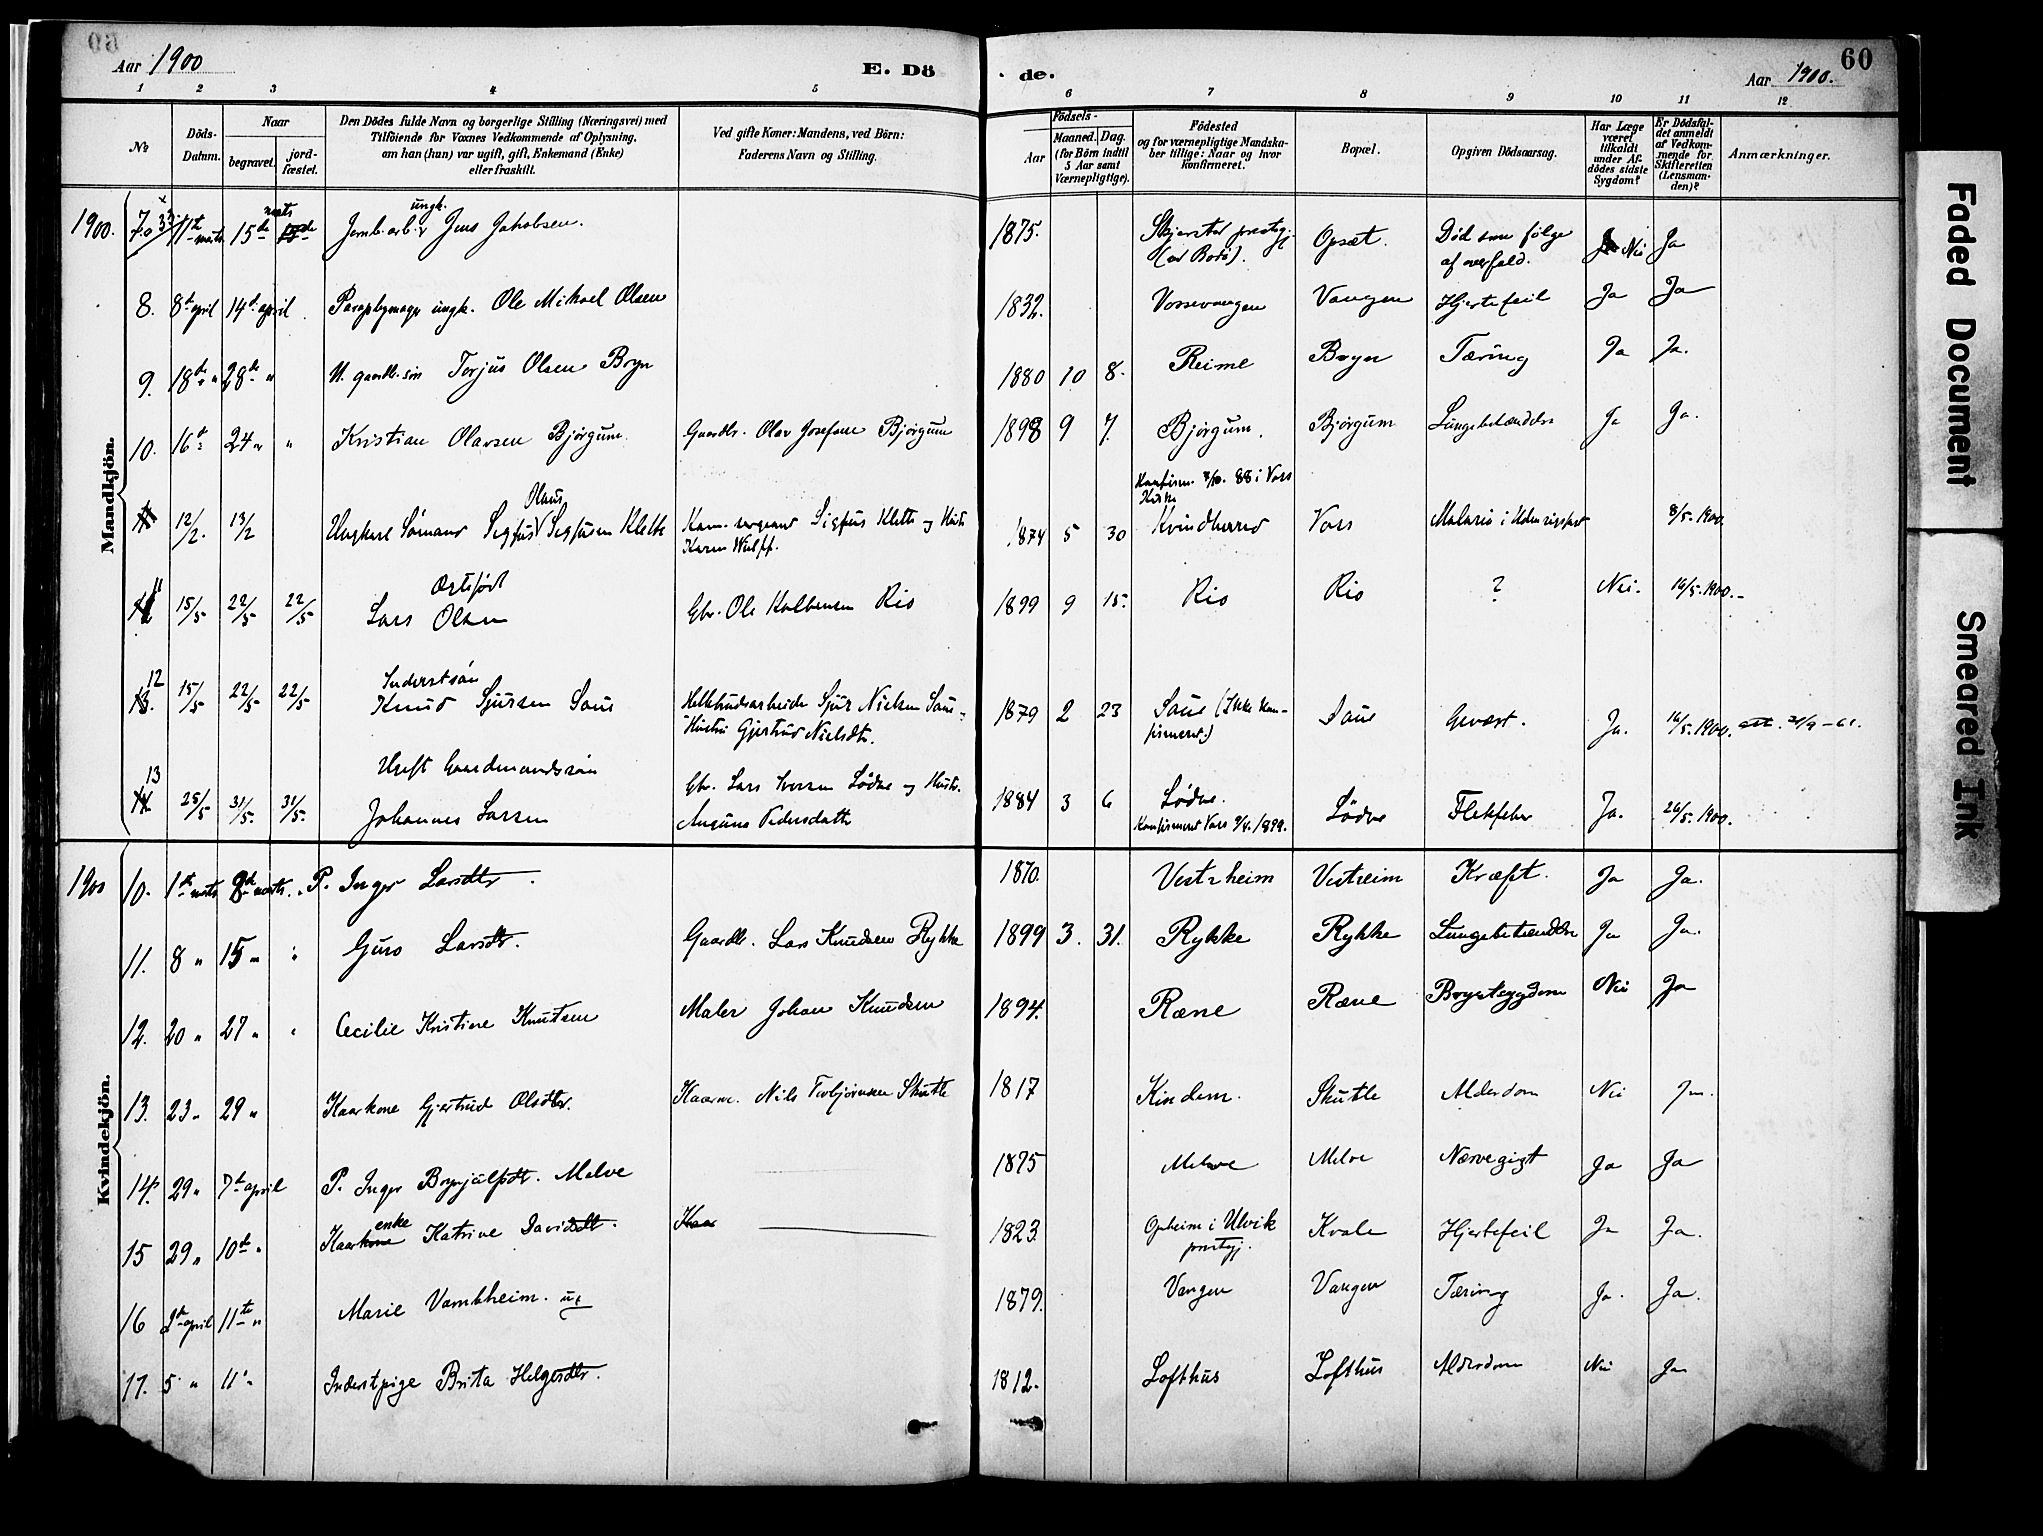 60
Aar 1900
E. Dö
de.
Aar 1900.
60
1 2 3 4 5 6 7 8 9 10 11 12
No
Döds-
Datum.
Naar
begravet.
jord-
fæstet.
Den Dödes fulde Navn og borgerlige Stilling (Næringsvei) med
Tilföiende for Voxnes Vedkommende af Oplysning,
om han (hun) var ugift, gift, Enkemand (Enke)
eller fraskilt.
Ved gifte Koner: Mandens, ved Börn:
Faderens Navn og Stilling.
Födsels-
Aar
Maaned. Dag.
(for Börn indtil
5 Aar samt
Værnepligtige).
Födested
og for værnepligtige Mandska-
ber tillige: Naar og hvor
konfirmeret.
Bopæl.
Opgiven Dödsaarsag.
Har Læge
været
tilkaldt
under Af-
dödes sidste
Sygdom?
Er Dödsfal-
det anmeldt
af Vedkom-
mende for
Skifteretten
(Lensman-
den)?
Anmærkninger.
Mandkjön.
1900. 7. 11te marts 15de marts ungk. Jens Jakobsen. 1875. prestegj. (ved Bodö). Opsæt. Död som følge af overfald. Nei Ja
8. 8de april 14de april Paraplymager ungk. Ole Mikael Olsen 1832. Vossevangen Vangen Hjertefeil Ja Ja
9. 18de " 28de " U. gaardb. sön Torjus Olsen Bryn 1880 10 8. Reime Bryn Tæring Ja Ja.
10. 16de 24 " " Kristian Olavsen Björgum Gaardbr. Olav Josefsen Björgum 1898 9 7. Björgum. Björgum Lungebetændelse Ja Ja.
11 12/2. 13/2 Ungkarl Sömand Sigfus Olaus Sigfusen Klette sergeant Sigfus Klette og Hustr. Karen Wulff. 1874 5 30 Konfirm. 88 i Vors Kirke Kvindherred Vors Malaria i 8/5. 1900.
11 15/5 22/5 22/5 Lars Olsen Gbr. Ole Kolbensen Rio 1899 9 15. Rio Rio ? Nei. 16/5. 1900.
12 15/5 22/5 22/5 Inderstsön Knud Sjursen Saue Sjur Nielsen Saue Hustru Gjertrud Nielsdtr. 1879 2 23 Saue (Ikke konfirmeret.) Saue Ja. 16/5. 1900.
13 25/5 31/5. 31/5. Ugift Gaardmandssön Johannes Larsen Gbr. Lars Iversen Lödve og Hustr. Pedersdatter 1884 3 6 Lödve. Konfirmeret Vors 1899. Lödve Flekfeber Ja. 26/5. 1900.
Kvindekjön.
1900 10. 1ste marts 8de marts. " P. Inger Larsdtr. 1870. Vestrheim Vestreim Kræft. Ja Ja.
11. 8 " 15 " " Guro Larsdtr. Gaardbr. Lars Knudsen Rykke 1899 3. 31. Rykke Rykke Lungebetændelse Ja Ja.
12. 20 " 27 " " Cecilie Kristine Knutsen Maler Johan Knudsen 1894. Ræne Ræne Brystsygdom Nei Ja
13. 23 " 29 " Kaarkone Gjertrud Olsdtr. Kaarm. Nils Torbjörnsen Skutle 1817 Kindem. Skutle Alderdom Nei Ja.
14. 29 " 7de april P. Inger Brynjulfsdt. Melve 1875 Melve Melve Nervegigt Ja Ja
15 29 " 10de " Kaarkone enke Katrine Davidsdt. Kaar 1823. Opheim i Ulvik prestegj. Kvale Hjertefeil Ja Ja.
16 2de april 11te " Marie Vambheim. ug 1879. Vangen Vangen Tæring Ja. Ja.
17. 5 " 11 " Inderstpige Brita Helgesdtr. 1812. Lofthus Lofthus Alderdom Nei Ja
Faded Document
Smeared Ink